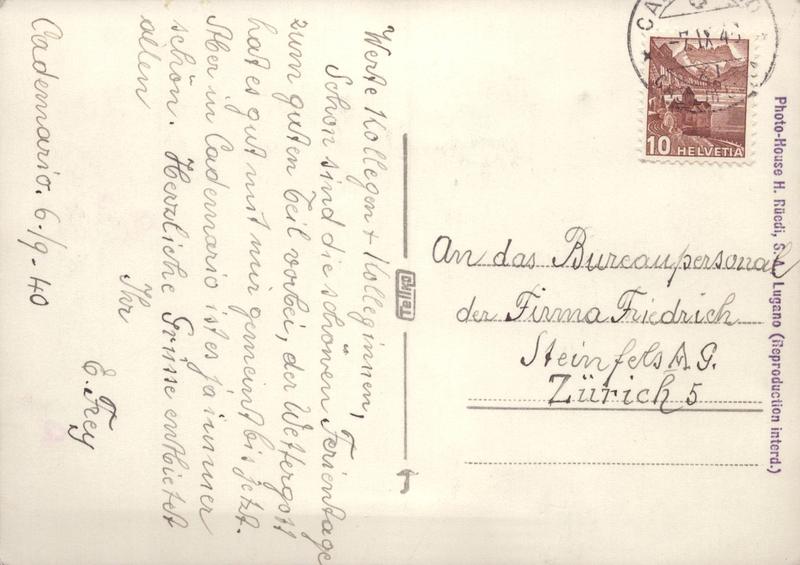 Werte Kollegen + Kolleginnen,
Schon sind die schönen Ferientage
zum guten Teil vorbei, der Wettergott
hat es gut mit mir gemeint bis jetzt.
Aber in Cademario ist es ja immer
schön. Herzliche Grüsse entbietet
allen
Ihr
E. Frey
Cademario. 6./9. 40
An das Bureaupersonal
der Firma Friedrich
Steinfels A.G.
Zürich 5
10 HELVETIA
Photo-House H. Rüedi, S. A. Lugano (Reproduction interd.)